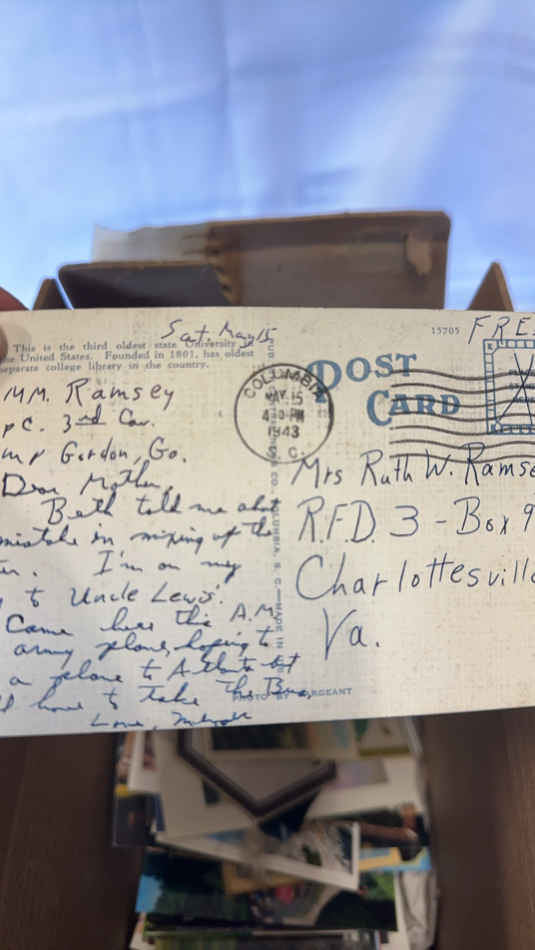 Sat. May 15
This is the third oldest state University
United States. Founded in 1801, has oldest
separate college library in the country.
M.M. Ramsey
3rd Cav.
Camp Gordon, Ga.
Dear Mother,
Beth told me about
mistake in mixing up the
I'm on my
to Uncle Lewis'.
Came here this A.M.
army plane, hoping to
a plane to Atlanta but
have to take the Bus.
Love,
COLUMBIA, S. C.—MADE IN
PHOTO BY SARGEANT
COLUMBIA
MAY 15
PM
1943
S. C.
15705
FREE
POST
CARD
Mrs Ruth W. Ramse
R.F.D. 3 - Box 9
Charlottesville
Va.